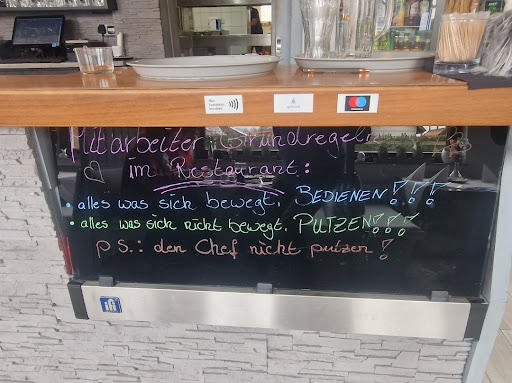 Mitarbeiter Grundregeln
im Restaurant:
• alles was sich bewegt, BEDIENEN!!!
• alles was sich nicht bewegt, PUTZEN!!!
PS.: den Chef nicht putzen!